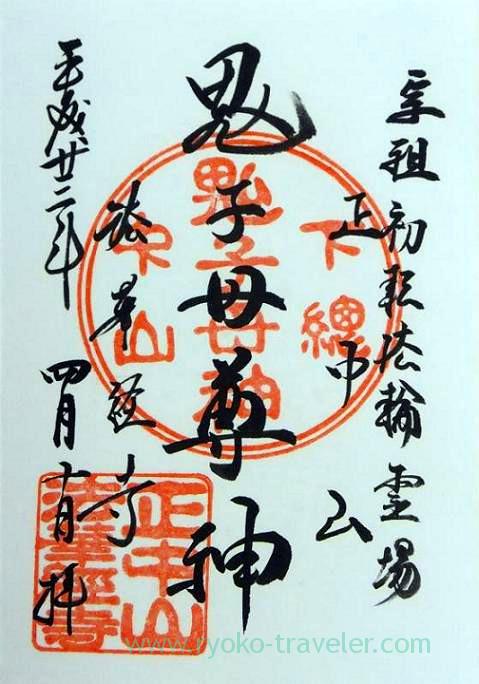 宗祖初転法輪霊場
正中山
鬼子母尊神
法華経寺
平成廿二年
四月十八日拝
下総
鬼子母神
中山
正中山
法華経寺
www.ryoko-traveler.com